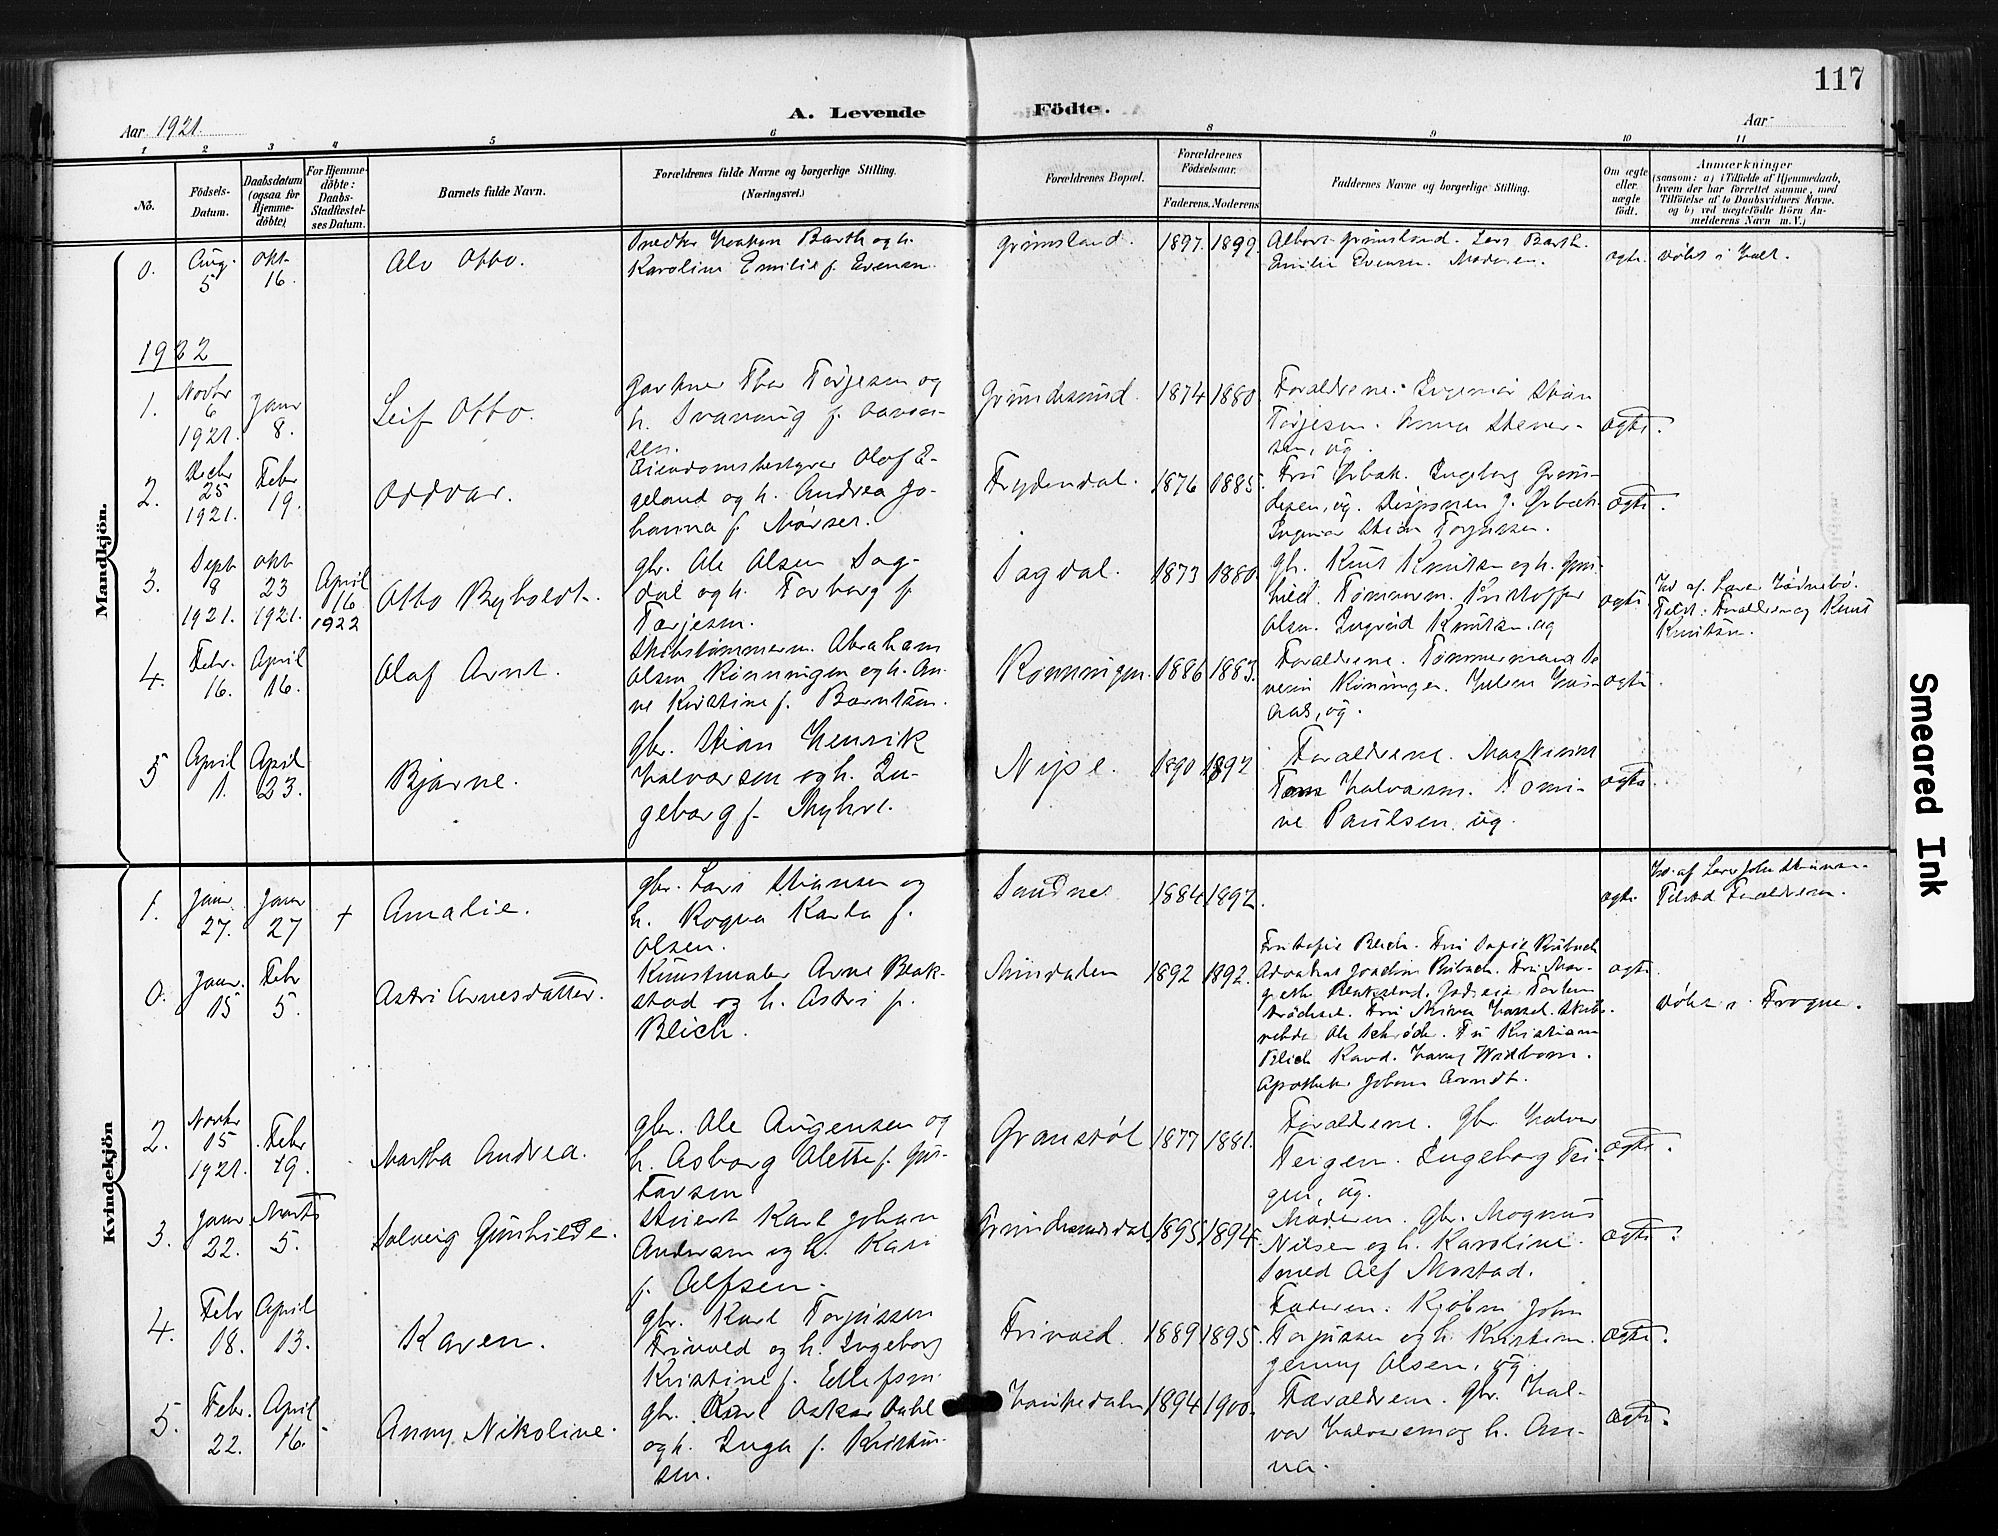 117
A. Levende Födte.
Aar 1921.
Aar
1 2 3 4 5 6 8 9 10 11
No.
Födsels-Datum.
Daabsdatum (ogsaa for Hjemme-döbte)
For Hjemme-döbte: Daabs-Stadfæstel-ses Datum.
Barnets fulde Navn.
Forældrenes fulde Navne og borgerlige Stilling. (Næringsvei.)
Forældrenes Bopæl.
Forældrenes Födselsaar.
Faderens. Moderens
Faddernes Navne og borgerlige Stilling.
Om ægte eller uægte födt.
Anmærkninger
(saasom: a) i Tilfælde af Hjemmedaab, hvem der har forrettet samme, med Tilföielse af to Daabsvidners Navne. og b) ved uægtefödte Börn An-melderens Navn m. V.)
Mandkjön.
0. Aug. 5 Okt 16. Alv Otto.
Snedker Haakon Barth og h.
Karoline Emilie f. Evensen.
Grimsland. 1897. 1899.
Lars Barth.
Emilie Evensen. Moderen.
ægte. døbt i Holt.
1922
1. Novbr 6 1921. Janr 8. Leif Otto.
Gartner Thor Terjesen og
h. Svanaug f. Aaven-
sen.
Grundesund. 1874 1880
Forældrene. Ingemar Stian
Terjesen. Anna Stener-
sen, ug.
ægte.
2. Decbr 25 1921. Febr 19. Oddvar.
Eiendomsbestyrer Olaf E-
geland og h. Andrea Jo-
hanna f. Mørser.
Frydendal. 1876 1885.
Ingeborg
Ingemar Stian Torjussen.
ægte.
3. Sept 8 1921. Okt 23 1921. April 16 1922 Otto Byholdt.
gbr. Ole Olsen Dag-
dal og h. Torborg f.
Terjesen.
Dagdal. 1873 1880
gbr. Knut Knutsen og h. Gun-
hild. Tømmerm. Kristoffer
Olsen. Ingrid Knutsen, ug
ægte.
Forældrene og Knut
Knutsen.
4. Febr. 16. April 16. Olaf Arnt.
Skibstømmerm. Abraham
Olsen Rønningen og h. An-
ne Kristine f. Berntsen.
Rønningen. 1886 1883.
Forældrene. Tømmermand Se-
verin Rønningen.
aas, ug.
ægte.
5 April 1. April 23. Bjarne.
gbr. Stian Henrik
Halvorsen og h. In-
geborg f. Myhre.
Nipe. 1890 1892
Forældrene.
Tom Halvorsen. Tomi-
ne Paulsen, ug.
ægte.
Kvindekjön
1. Janr 27. Janr 27 + Amalie.
gbr. Lars Stiansen og
h. Ragna Karla f.
Olsen.
Sandnes 1884 1892.
ægte.
Tilsted Forældrene.
0. Janr. 15 Febr 5. Astri Arnesdatter.
Kunstmaler Arne Blek-
stad og h. Astri f.
Blich.
Mindalen 1892 1892.
Fru Sofie Blich.
Advokat Joachim
Fru Kristiane
Blich
Apotheker Johan Arndt.
ægte.
døbt i Frogner.
2. Novbr 15 1921. Febr 19. Martha Andrea.
gbr. Ole Augensen og
h. Asborg Alette f. Gus-
tavsen
Granstøl 1877 1881.
Forældrene. Gbr. Halvor
Teigen. Ingeborg Tei-
gen, ug.
ægte.
3. Janr 22. Marts 5. Solveig Gunhilde.
Stuert Karl Johan
Andersen og h. Kari
f. Alfsen.
Grundesundsdal 1895 1894
Moderen. gbr. Magnus
Nilsen og h. Karoline.
Smed Alf Mostad.
ægte.
4. Febr 18. April 13. Karen.
gbr. Karl Torjussen
Frivold og h. Ingeborg
Kristine f. Ellefsen.
Frivold. 1889 1895.
Faderen. Kjøbm. John
Torjussen og h. Kristiane.
Jenny Olsen, ug.
ægte.
5. Febr. 22. April 16. Anny Nikoline.
gbr. Karl Oskar Dahl
og h. Inga f. Kristen-
sen.
Hankedalen 1894 1900.
Forældrene. Gbr. Hal-
vor Halvorsen og h. An-
na.
ægte.
Smeared Ink